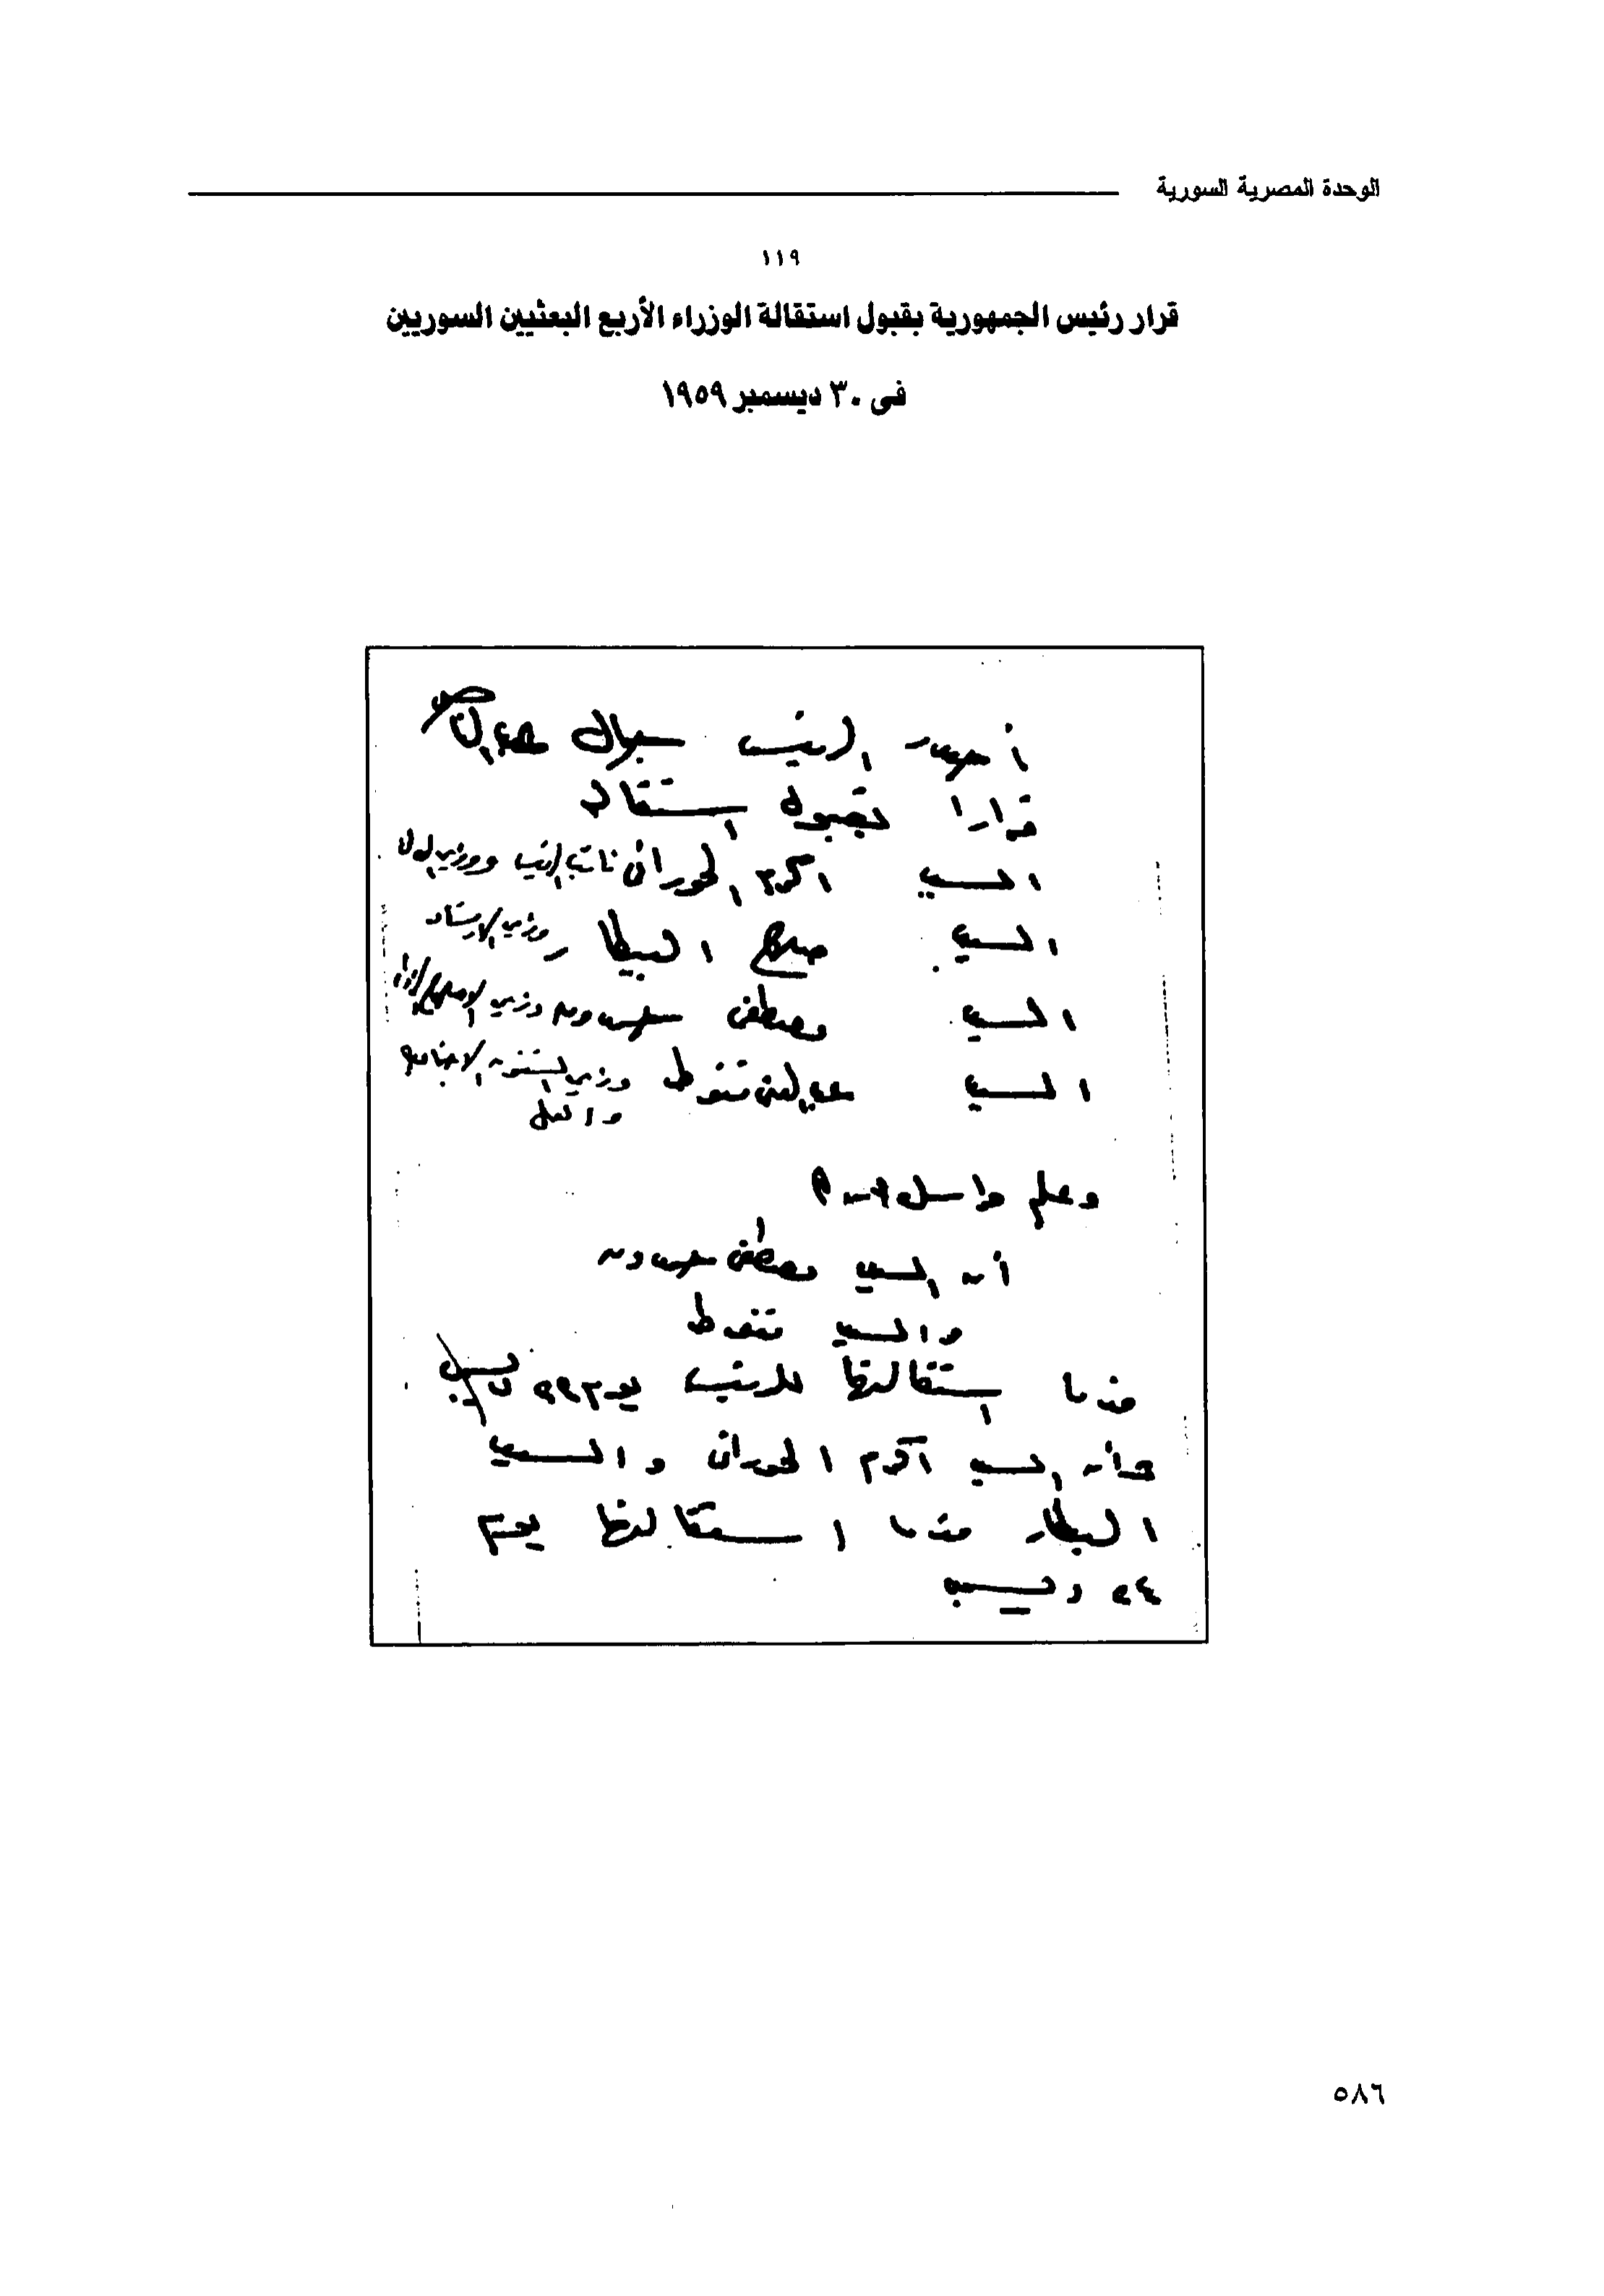 الوحدة المصرية السورية
١١٩
قرار رئيس الجمهورية بقبول استقالة الوزراء الأربع البعثيين السوريين
فى ٣٠ ديسمبر ١٩٥٩
أصدر الرئيس جمال عبد الناصر
قرارا بقبول استقالة
السيد اكرم الحورانى نائب الرئيس ووزير العدل
السيد صلاح البيطار وزير الارشاد
السيد مصطفى حمدون وزير الاصلاح الزراعى
السيد عبد الغنى قنوط وزير الشئون الاجتماعية
والعمل
وعلم مراسل
أن السيد مصطفى حمدون
والسيد قنوط
قدما استقالتهما للرئيس يوم ٢٣ ديسمبر
وأن السيد أكرم الحورانى والسيد
البيطار قدما استقالتهما يوم
٢٤ ديسمبر
٥٨٦